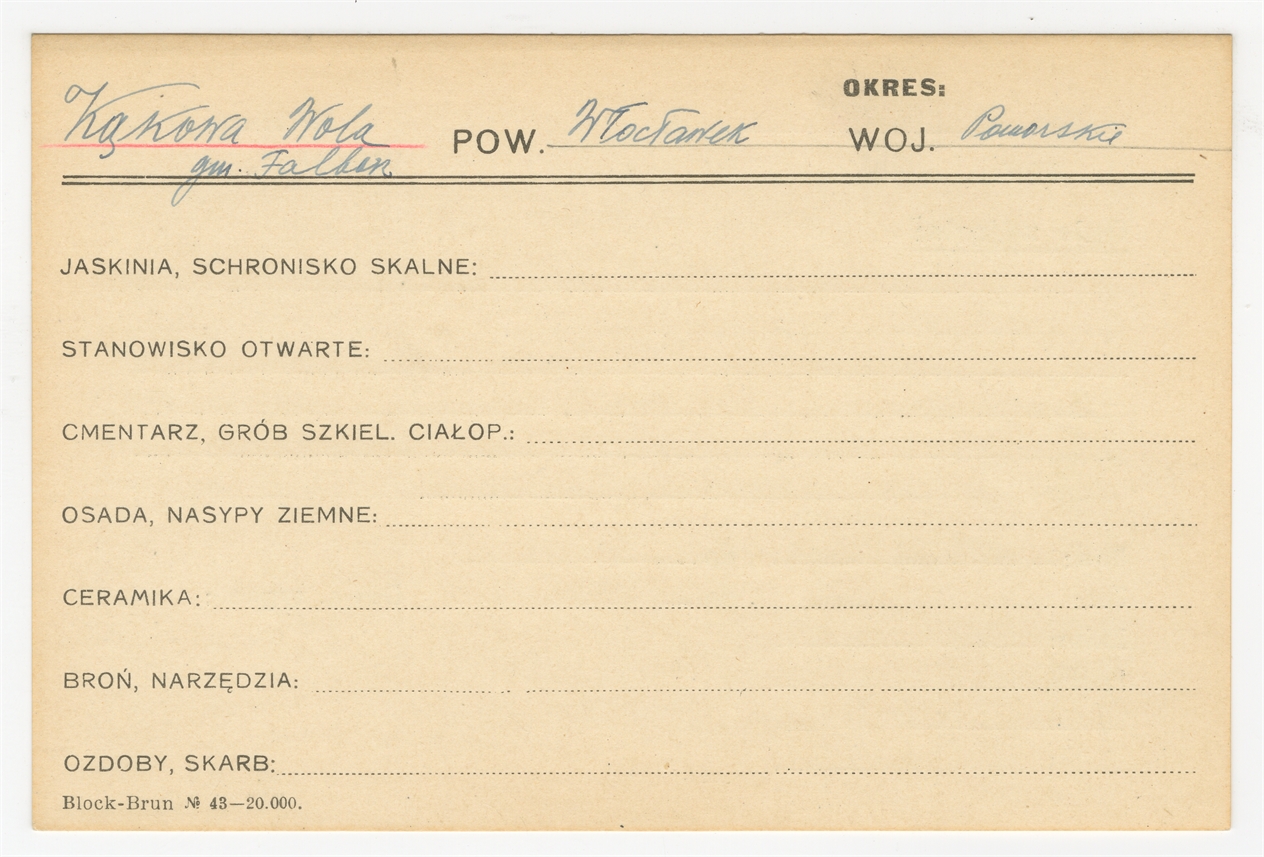 OKRES:
Kąkowa Wola POW. Włocławek WOJ. Pomorskie
gm. Falbon
JASKINIA, SCHRONISKO SKALNE:
STANOWISKO OTWARTE:
CMENTARZ, GRÓB SZKIEL. CIAŁOP.:
OSADA, NASYPY ZIEMNE:
CERAMIKA:
BROŃ, NARZĘDZIA:
OZDOBY, SKARB:
Block-Brun № 43—20.000.